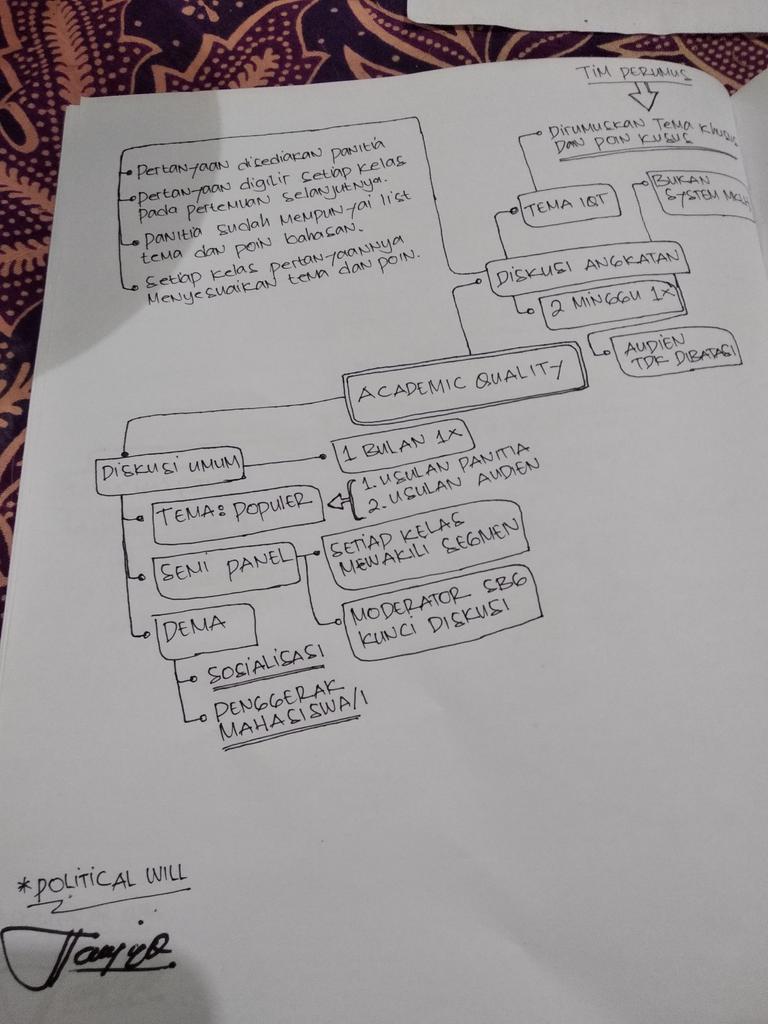 TIM PERUMUS
DIRUMUSKAN TEMA KHUSUS
DAN POIN KUSUS
Pertanyaan disediakan panitia
Pertanyaan digilir setiap kelas
pada pertemuan selanjutnya.
Panitia sudah mempunyai list
tema dan poin bahasan.
Setiap kelas pertanyaannya
menyesuaikan tema dan poin.
TEMA IQT
BUKAN
SYSTEM
DISKUSI ANGKATAN
2 MINGGU 1X
AUDIEN
TDK DIBATASI
ACADEMIC QUALITY
DISKUSI UMUM
1 BULAN 1X
TEMA: POPULER
1. USULAN PANITIA
2. USULAN AUDIEN
SEMI PANEL
SETIAP KELAS
MEWAKILI SEGMEN
MODERATOR SBG
KUNCI DISKUSI
DEMA
SOSIALISASI
PENGGERAK
MAHASISWA/I
*POLITICAL WILL